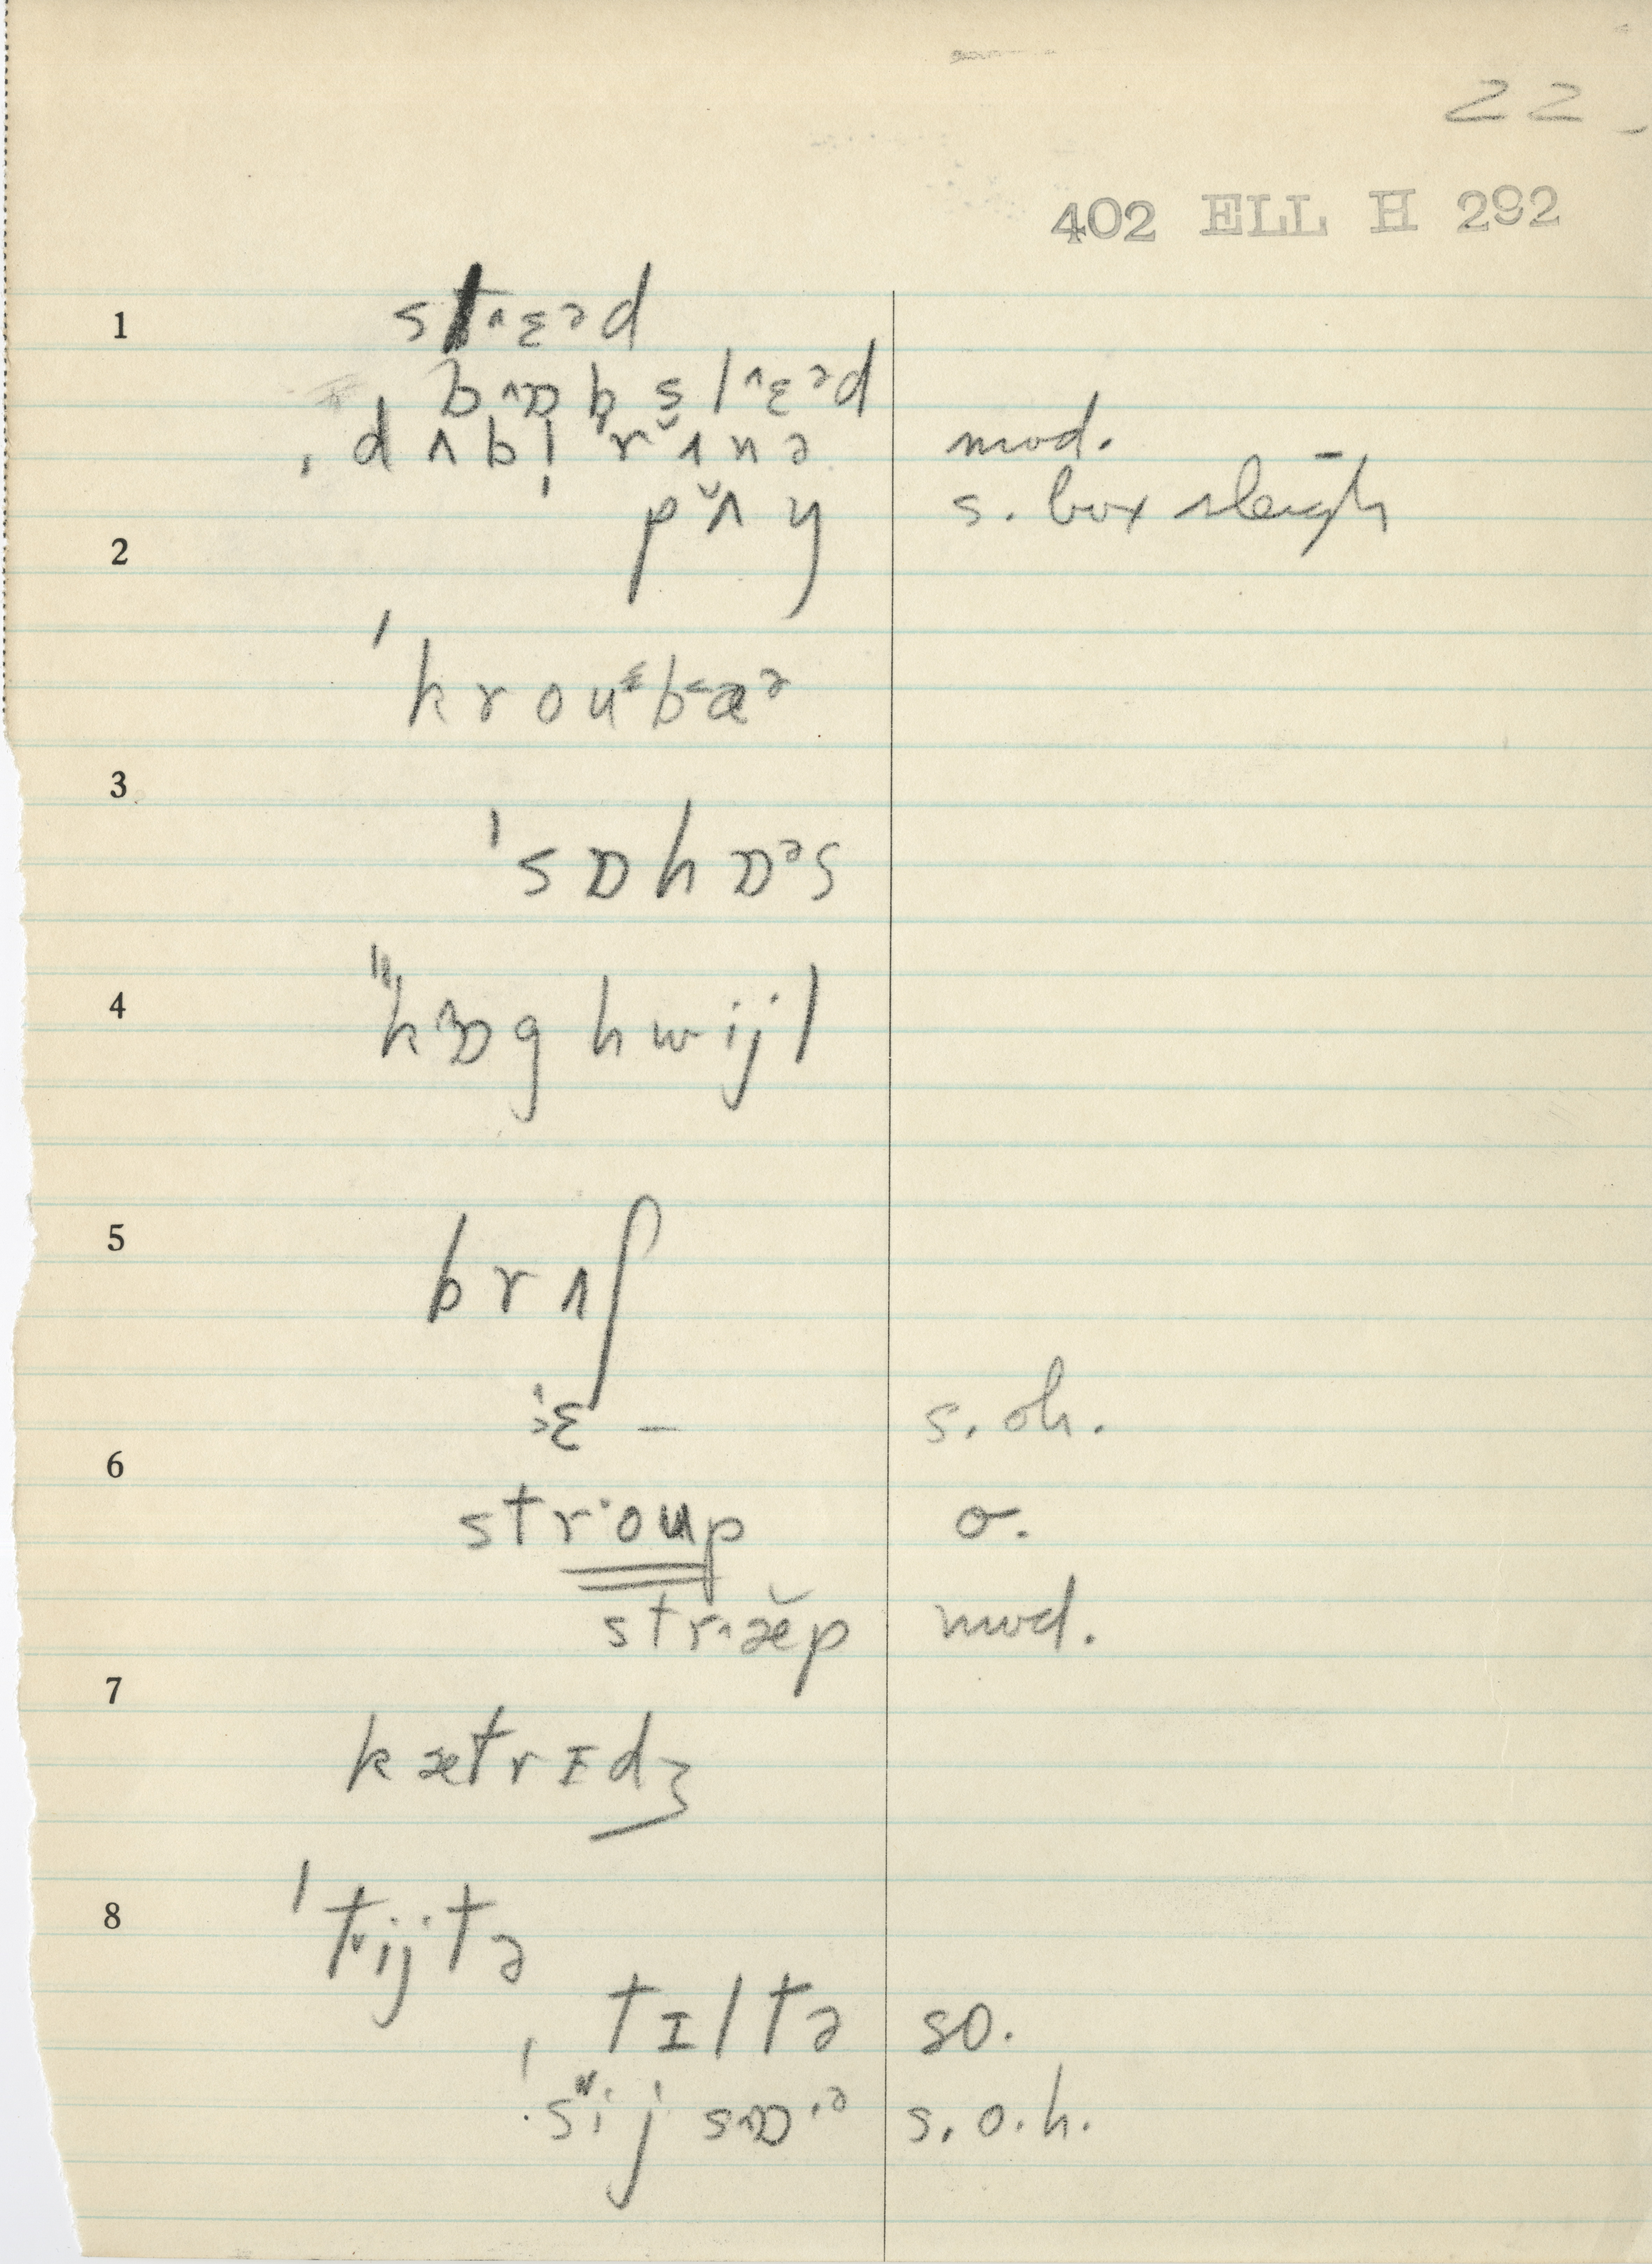 22
402 ELL H 292
1
slɛᵊd
bɒb slɛᵊd
ˌdʌbl̩ ˈrʌnə mod.
2
pʌŋ s. box sleigh
ˈkroubaᵊ
3
ˈsɒhɒᵊs
4
ˈkɒghwijl
5
brʌʃ
ɛ – s. oh.
6
stroup o.
stræ̆p mod.
7
kætrɪdʒ
8
ˈtijtə
ˈtɪltə so.
ˈsijsɒᵊ s. o. h.